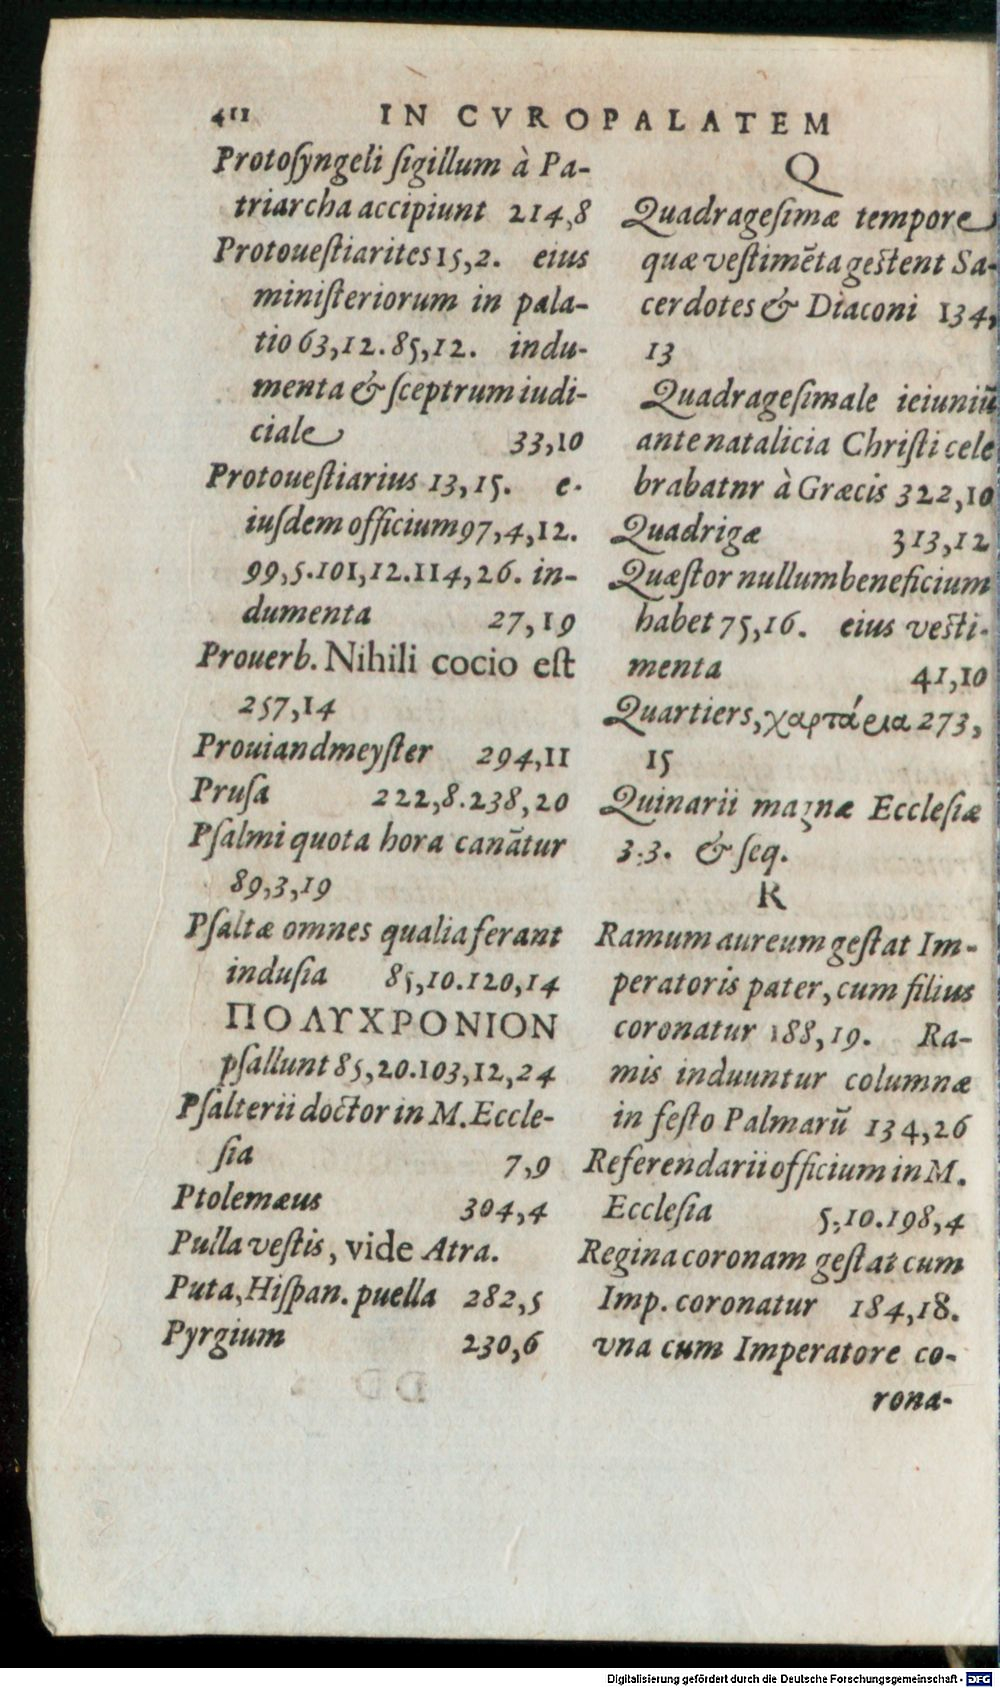 411 IN CVROPALATEM
Protoſyngeli ſigillum à Pa-
triarcha accipiunt 214,8
Protoueſtiarites 15,2. eius
miniſteriorum in pala-
tio 63,12.85,12. indu-
menta & ſceptrum iudi-
ciale 33,10
Protoueſtiarius 13,15. e-
iuſdem officium 97,4,12.
99,5.101,12.114,26. in-
dumenta 27,19
Prouerb. Nihili cocio eſt
257,14
Prouiandmeyſter 294,11
Pruſa 222,8.238,20
Pſalmi quota hora canātur
89,3,19
Pſaltæ omnes qualia ferant
induſia 85,10.120,14
ΠΟΛΥΧΡΟΝΙΟΝ
pſallunt 85,20.103,12,24
Pſalterii doctor in M. Eccle-
ſia 7,9
Ptolemæus 304,4
Pulla veſtis, vide Atra.
Puta, Hiſpan. puella 282,5
Pyrgium 230,6
Q
Quadrageſimæ tempore
quæ veſtimēta geſtent Sa-
cerdotes & Diaconi 134,
13
Quadrageſimale ieiuniū
ante natalicia Chriſti cele
brabatnr à Græcis 322,10
Quadrigæ 313,12
Quæſtor nullum beneficium
habet 75,16. eius veſti-
menta 41,10
Quartiers, χαρτάρια 273,
15
Quinarii magnæ Eccleſiæ
3.3. & ſeq.
R
Ramum aureum geſtat Im-
peratoris pater, cum filius
coronatur 188,19. Ra-
mis induuntur columnæ
in feſto Palmarū 134,26
Referendarii officium in M.
Eccleſia 5,10.198,4
Regina coronam geſtat cum
Imp. coronatur 184,18.
vna cum Imperatore co-
rona-
Digitalisierung gefördert durch die Deutsche Forschungsgemeinschaft - DFG